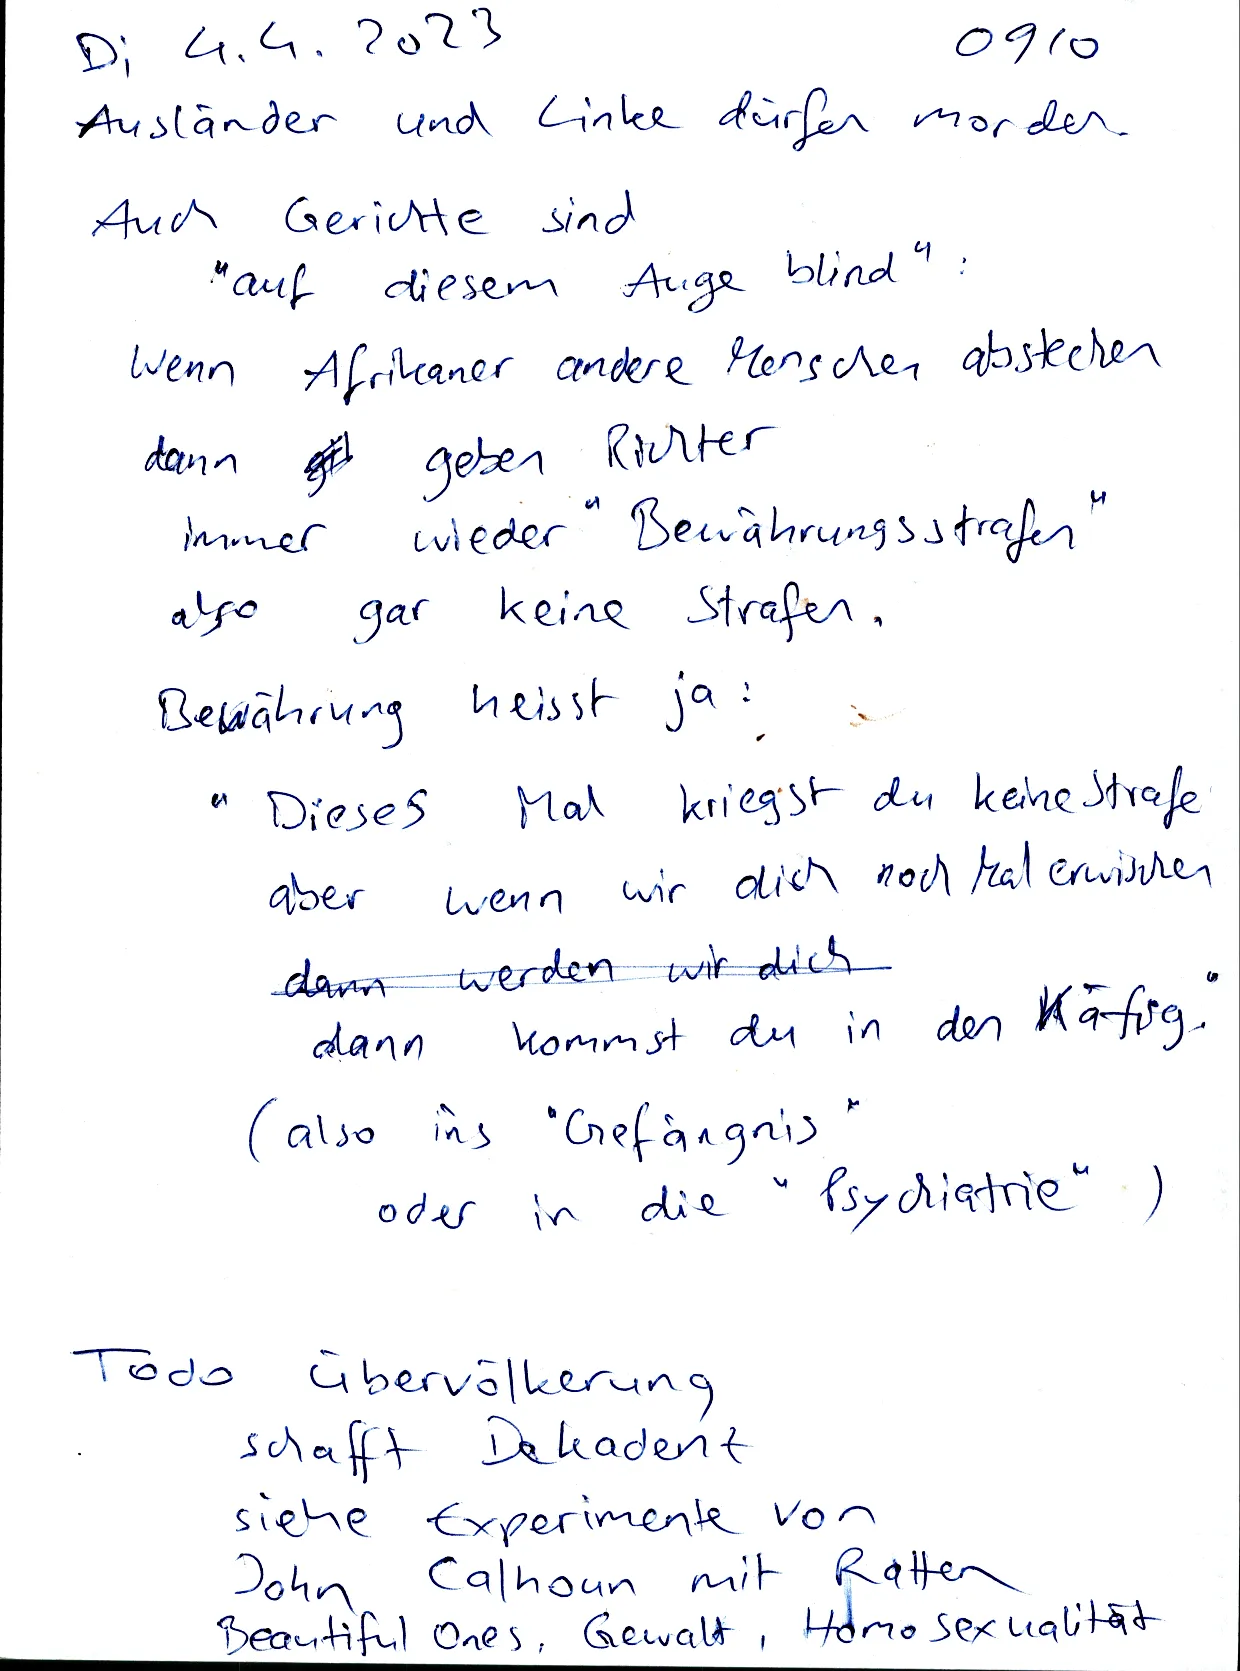 Di 4.4.2023 0910
Ausländer und Linke dürfen morden.
Auch Gerichte sind
"auf diesem Auge blind":
Wenn Afrikaner andere Menschen abstechen
dann geben Richter
immer wieder "Bewährungsstrafen"
also gar keine Strafen.
Bewährung heisst ja:
"Dieses Mal kriegst du keine Strafe
aber wenn wir dich noch Mal erwischen
dann werden wir dich
dann kommst du in den Käfig."
(also ins "Gefängnis"
oder in die "Psychiatrie")
Todo Übervölkerung
schafft Dekadent
siehe Experimente von
John Calhoun mit Ratten
Beautiful Ones, Gewalt, Homosexualität